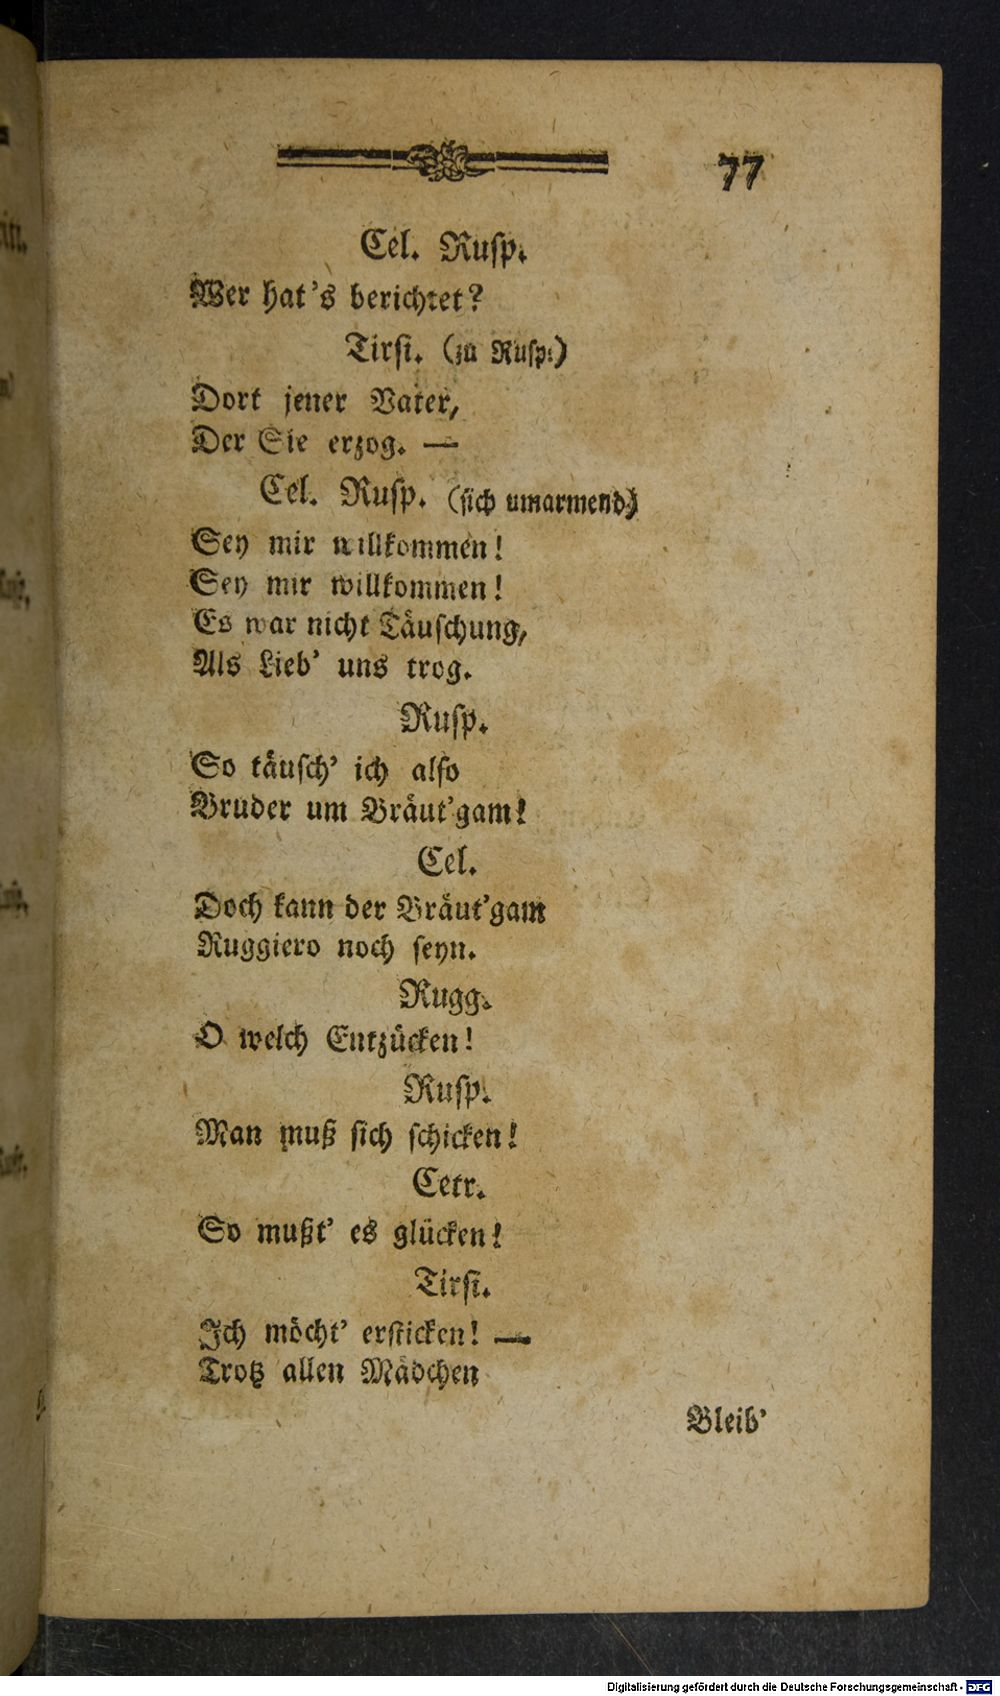 77
Cel. Ruſp.
Wer hat's berichtet?
Tirſi. (zu Ruſp.)
Dort jener Vater,
Der Sie erzog. —
Cel. Ruſp. (ſich umarmend)
Sey mir willkommen!
Sey mir willkommen!
Es war nicht Täuſchung,
Als Lieb' uns trog.
Ruſp.
So täuſch' ich alſo
Bruder um Bräut'gam!
Cel.
Doch kann der Bräut'gam
Ruggiero noch ſeyn.
Rugg.
O welch Entzücken!
Ruſp.
Man muß ſich ſchicken!
Cetr.
So mußt' es glücken!
Tirſi.
Ich möcht' erſticken! —
Trotz allen Mädchen
Bleib'
Digitalisierung gefördert durch die Deutsche Forschungsgemeinschaft - DFG